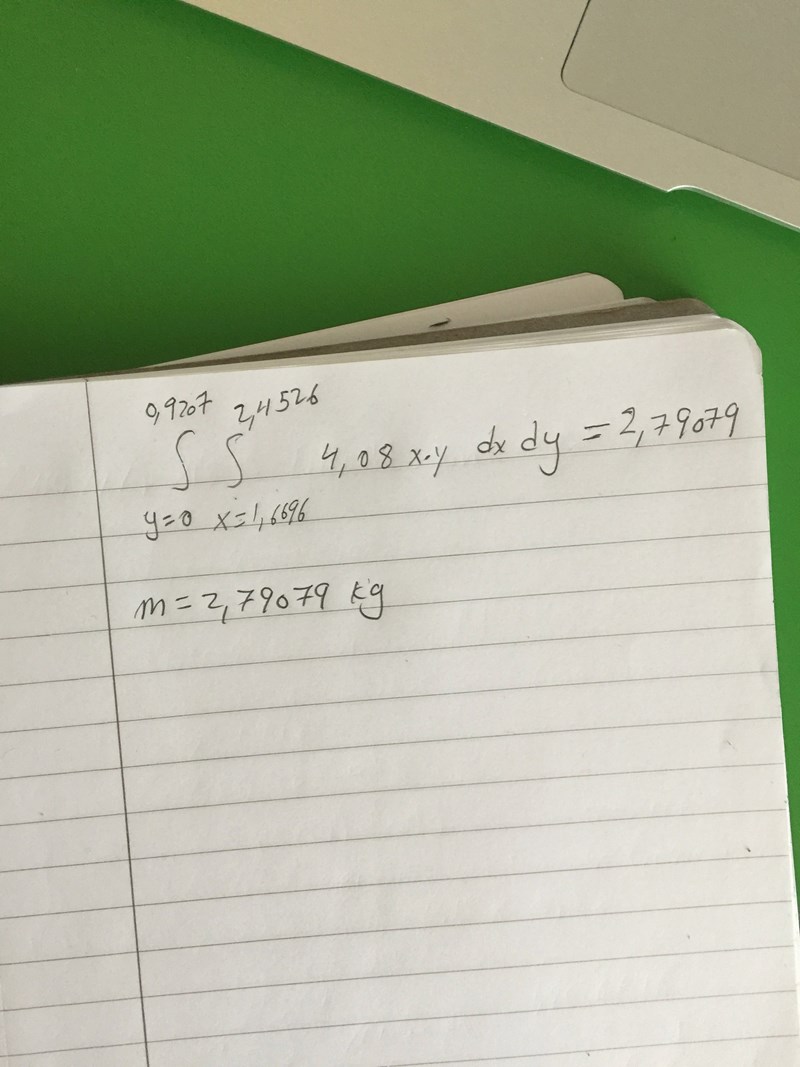 0,9207 2,4526
∫ ∫ 4,08 x·y dx dy = 2,79079
y=0 x=1,6696
m = 2,79079 kg